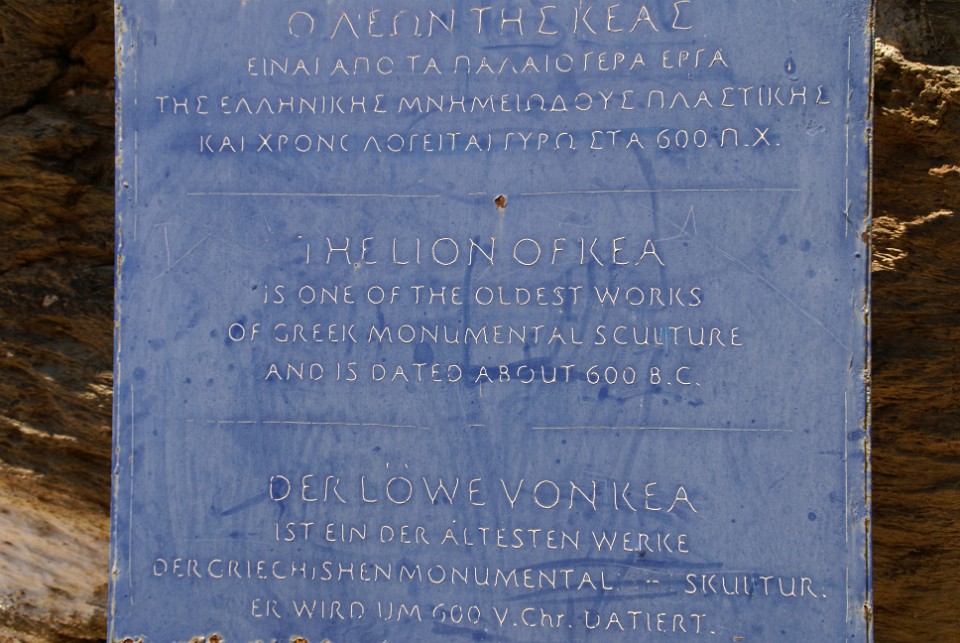 Ο ΛΕΩΝ ΤΗΣ ΚΕΑΣ
ΕΙΝΑΙ ΑΠΟ ΤΑ ΠΑΛΑΙΟΤΕΡΑ ΕΡΓΑ
ΤΗΣ ΕΛΛΗΝΙΚΗΣ ΜΝΗΜΕΙΩΔΟΥΣ ΠΛΑΣΤΙΚΗΣ
ΚΑΙ ΧΡΟΝΟΛΟΓΕΙΤΑΙ ΓΥΡΩ ΣΤΑ 600 Π.Χ.
THE LION OF KEA
IS ONE OF THE OLDEST WORKS
OF GREEK MONUMENTAL SCULTURE
AND IS DATED ABOUT 600 B.C.
DER LÖWE VON KEA
IST EIN DER ÄLTESTEN WERKE
DER GRIECHISHEN MONUMENTAL - SKULTUR.
ER WIRD UM 600 V.Chr. DATIERT.